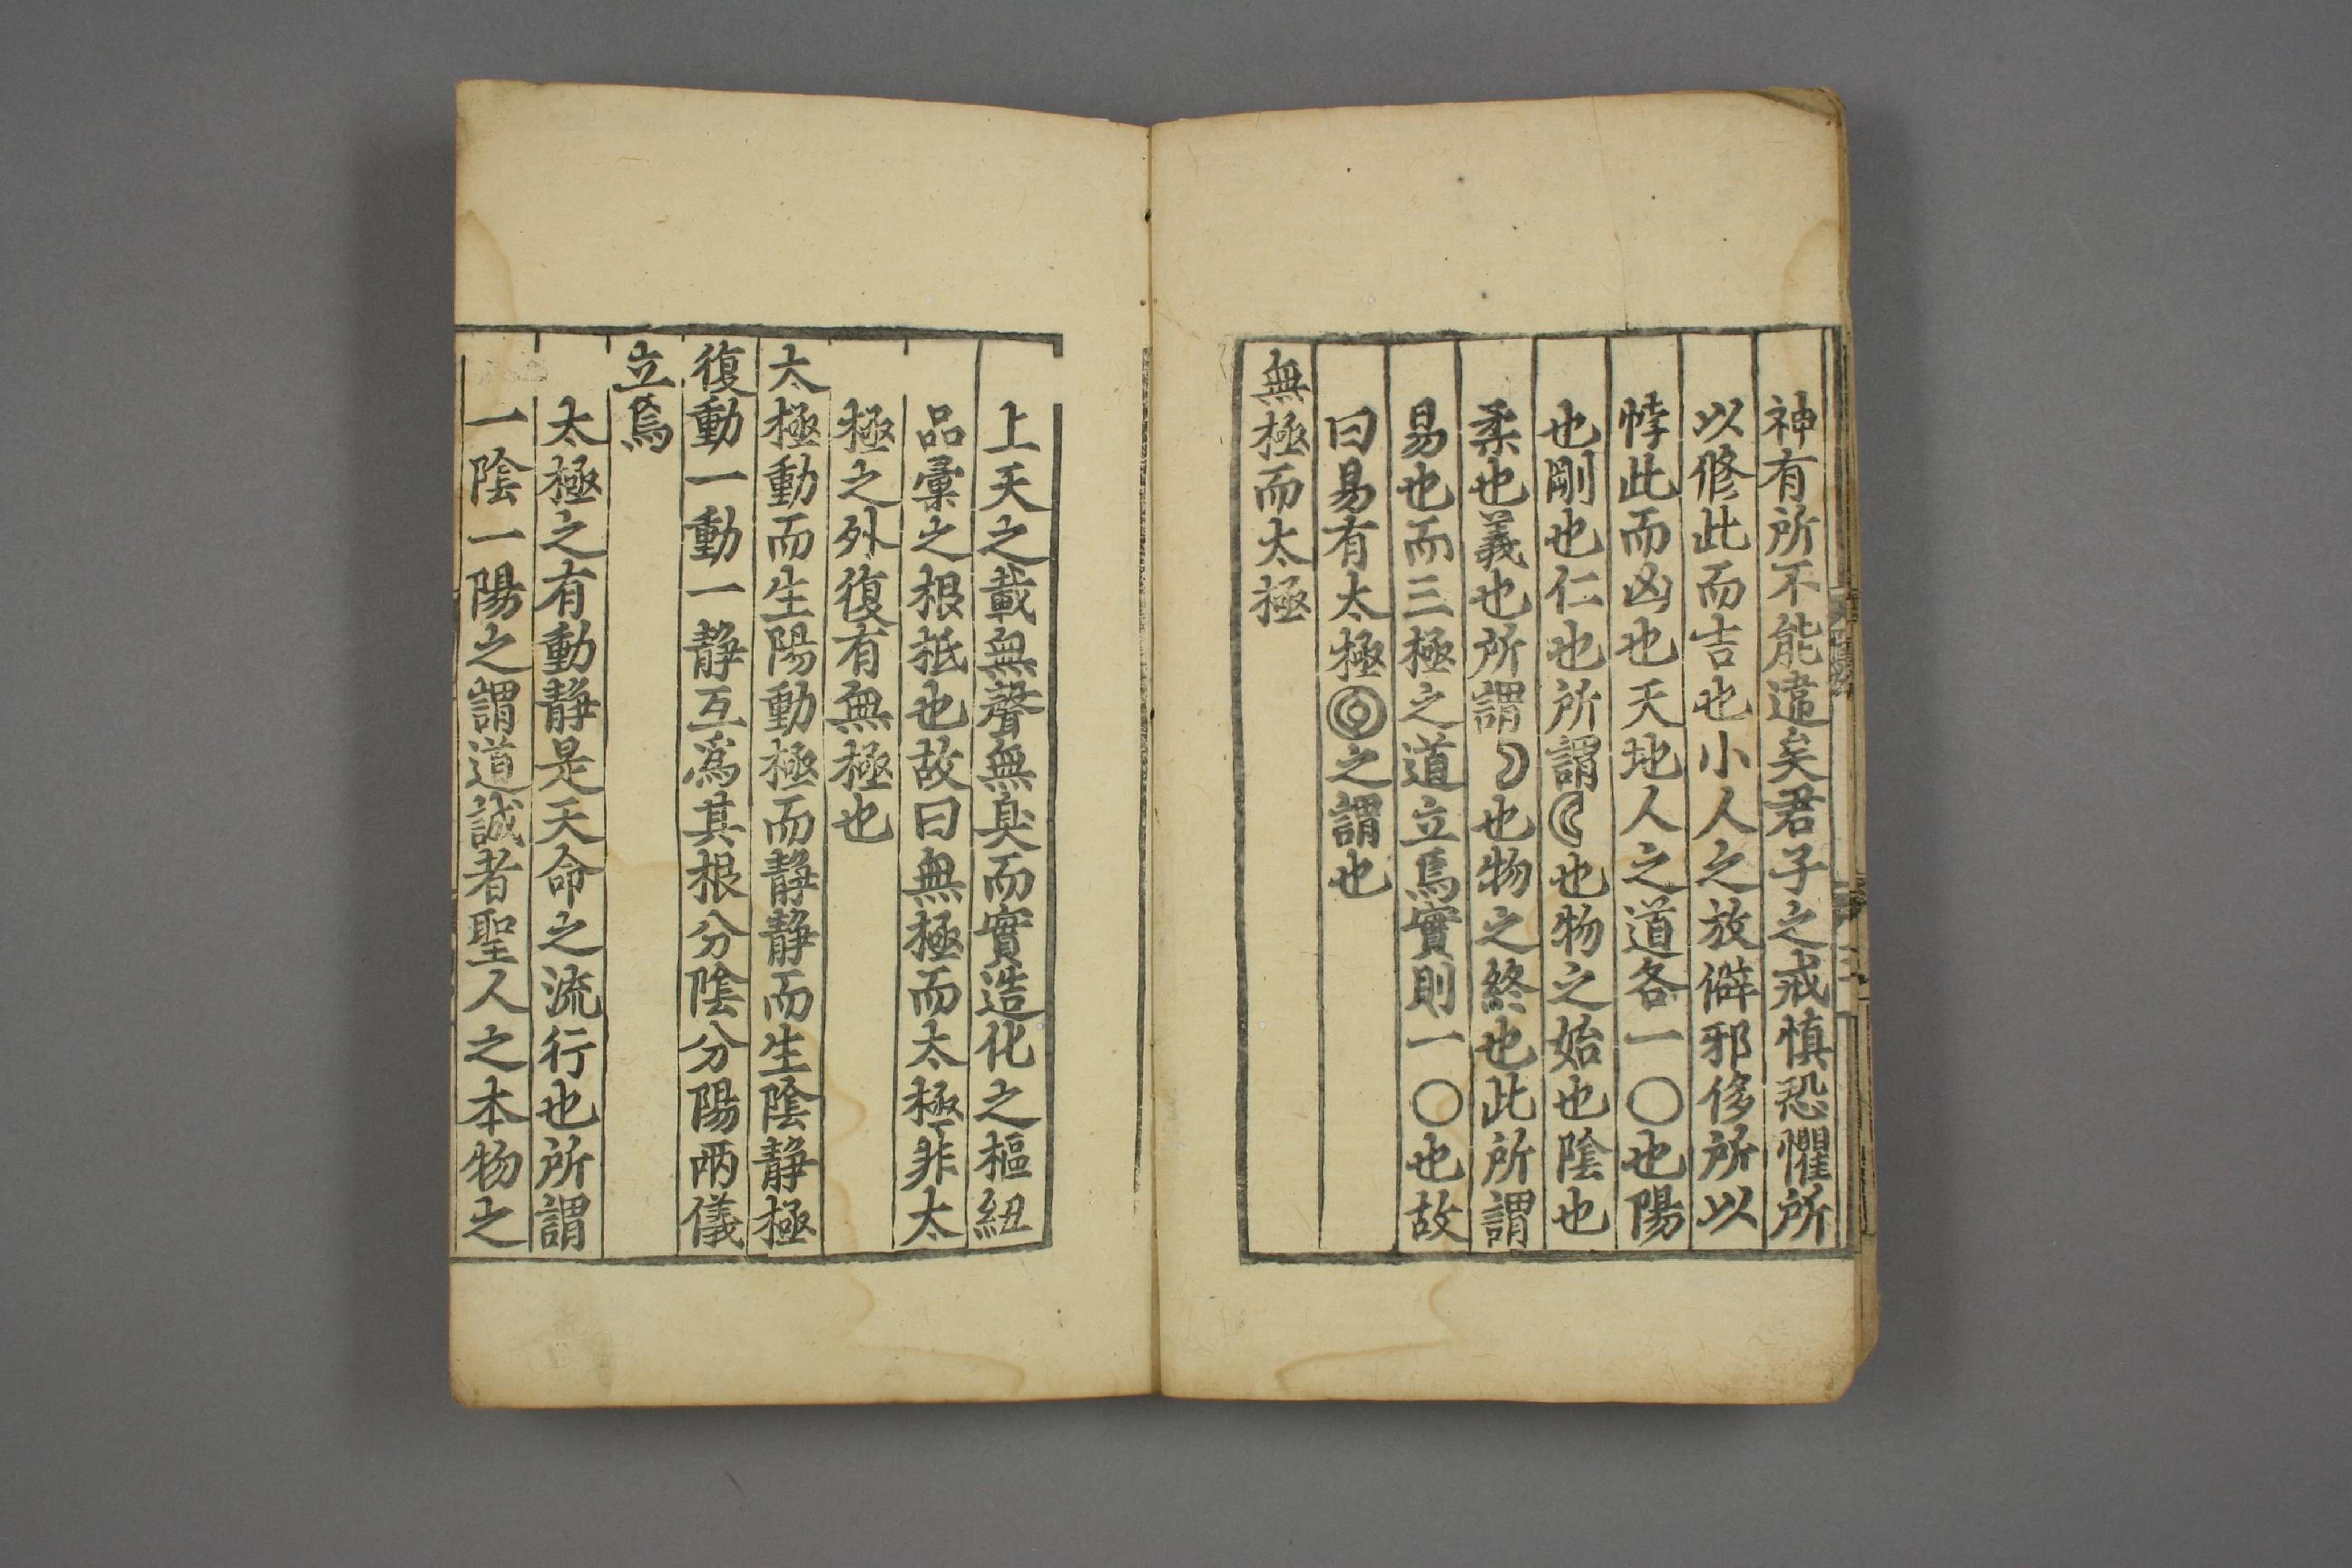 神有所不能違矣君子之戒慎恐懼所
以修此而吉也小人之放僻邪侈所以
悖此而凶也天地人之道各一〇也陽
也剛也仁也所謂☾也物之始也陰也
柔也義也所謂☽也物之終也此所謂
易也而三極之道立焉實則一〇也故
曰易有太極◎之謂也
無極而太極
上天之載無聲無臭而實造化之樞紐
品彙之根柢也故曰無極而太極非太
極之外復有無極也
太極動而生陽動極而靜靜而生陰靜極
復動一動一靜互爲其根分陰分陽兩儀
立焉
太極之有動靜是天命之流行也所謂
一陰一陽之謂道誠者聖人之本物之